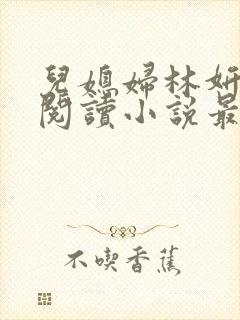 兒媳婦林妍
閱讀小說最
不喫香蕉